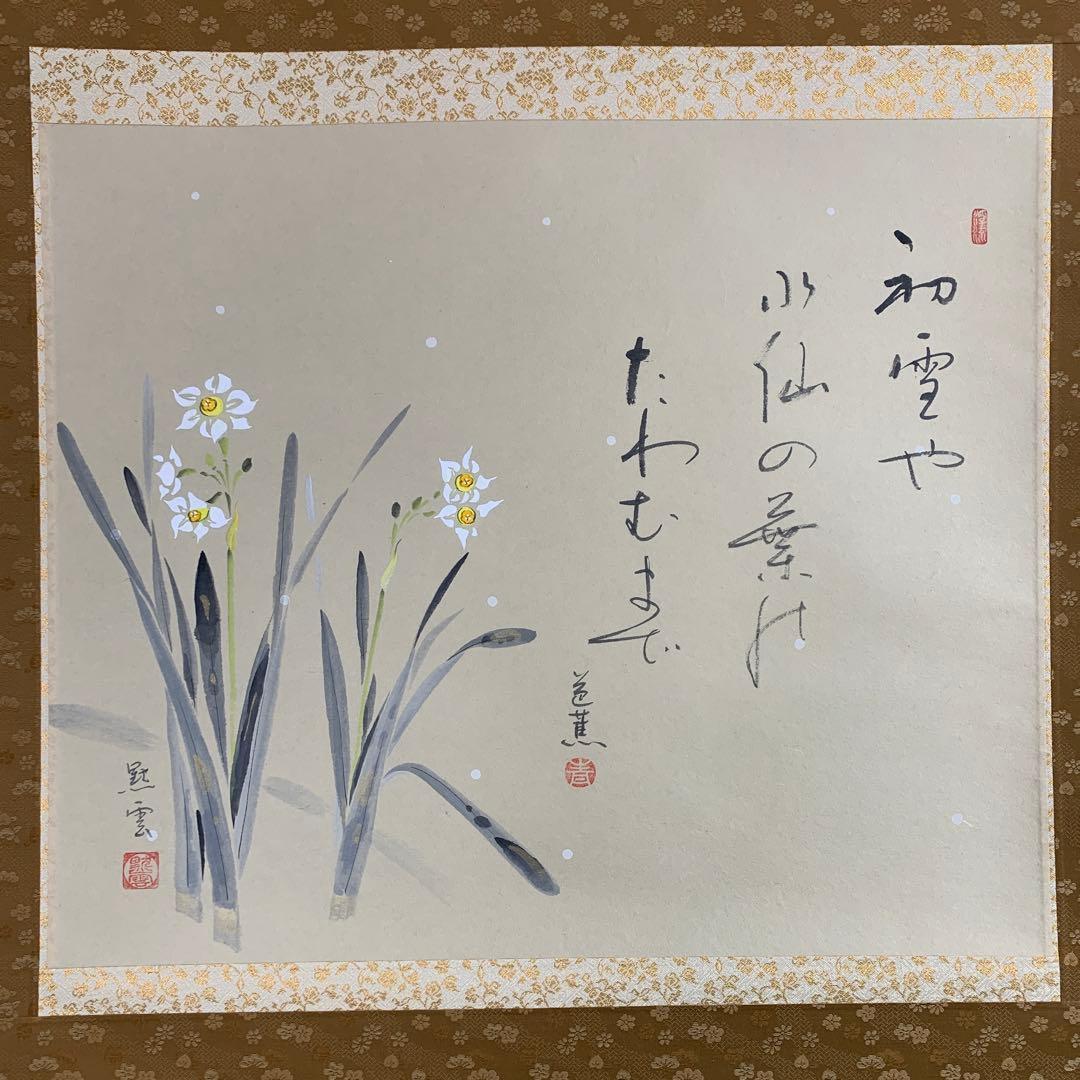 初雪や
水仙の葉の
たわむまで
芭蕉
黙雲